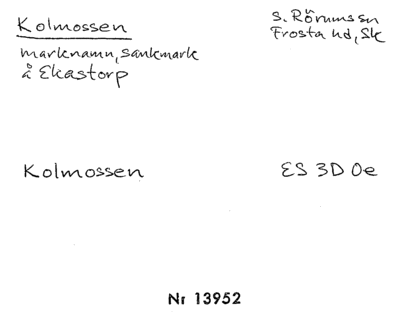 Kolmossen
S. Rörums sn
Frosta hd, Sk
marknamn, sankmark
å Ekastorp
Kolmossen
ES 3D 0e
Nr 13952